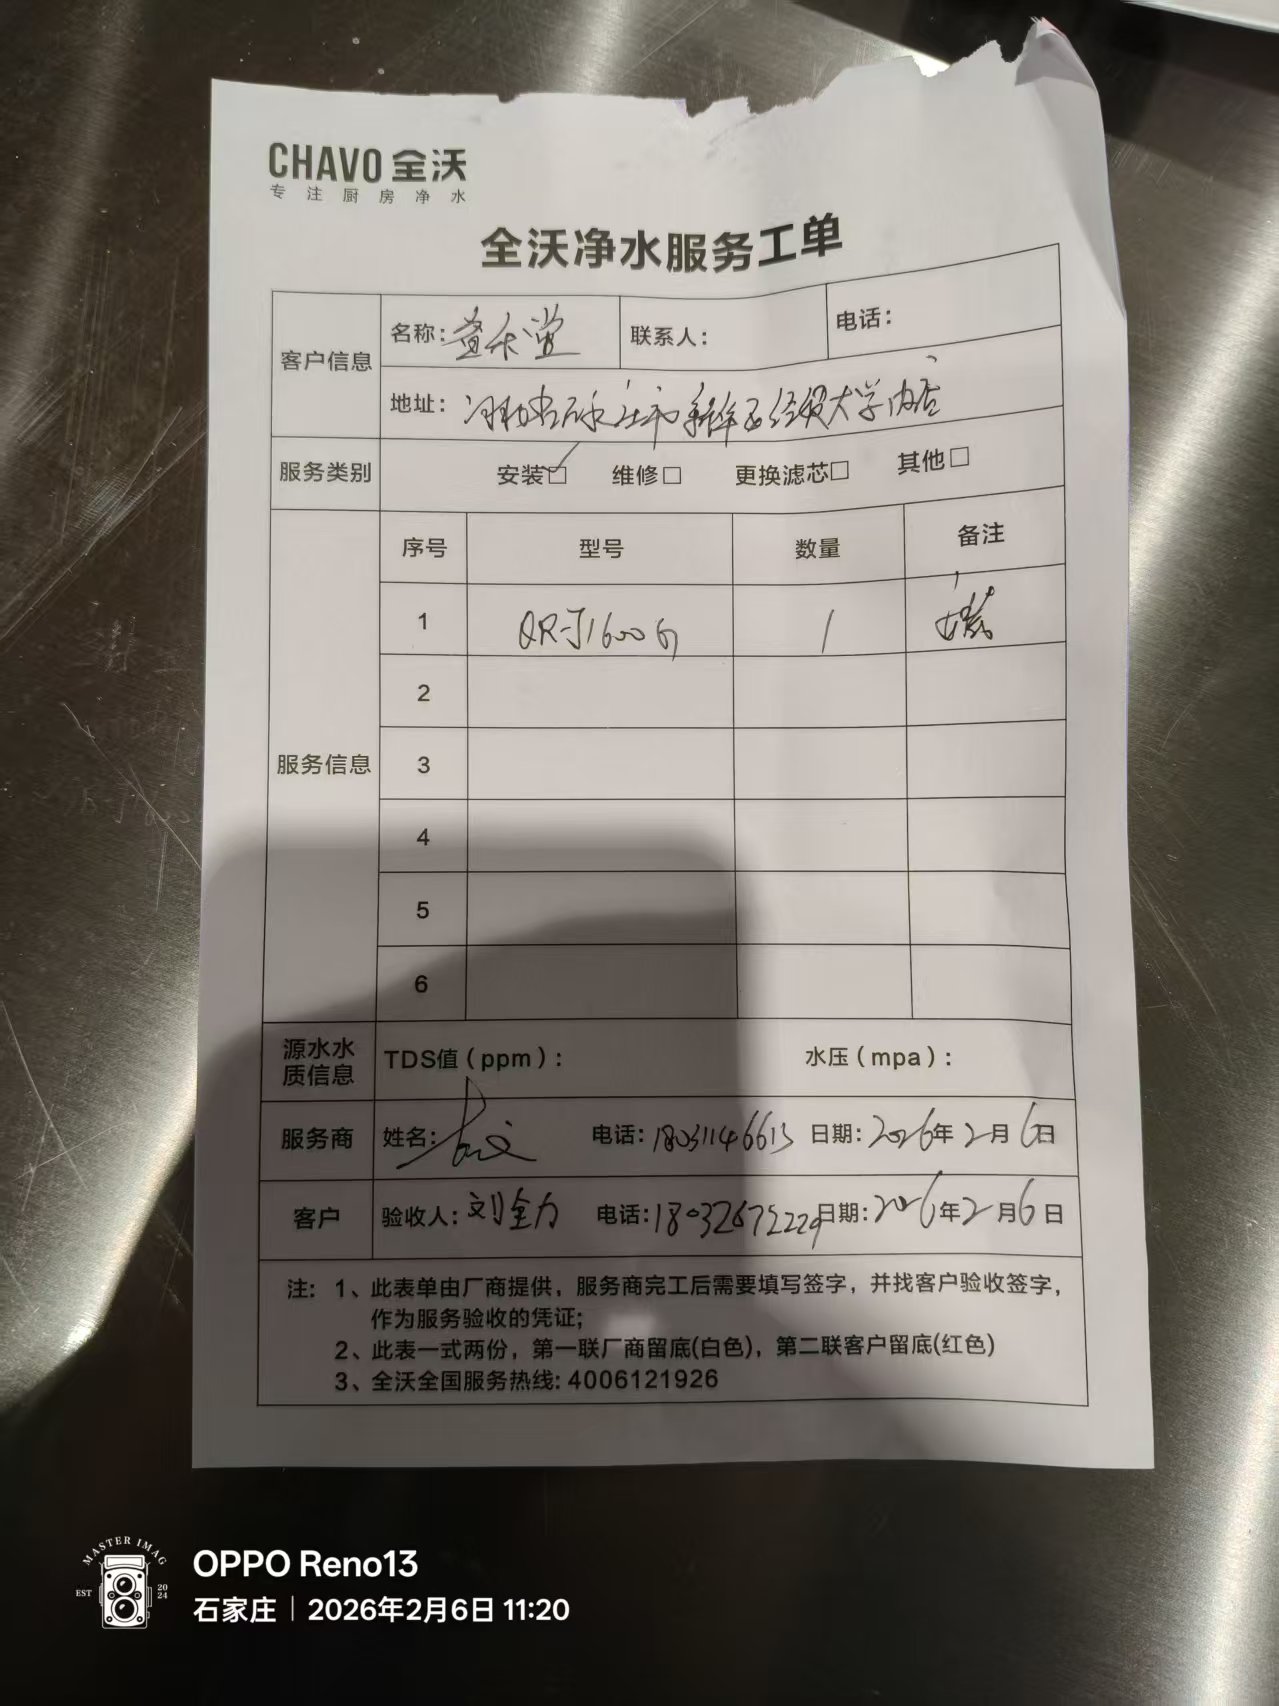 CHAVO 全沃
专注厨房净水
全沃净水服务工单
客户信息 名称: 联系人: 电话:
地址: 河北省石家庄市新华区经贸大学内店
服务类别 安装☑ 维修□ 更换滤芯□ 其他□
服务信息 序号 型号 数量 备注
1 QR-J1600G 1 安装
2
3
4
5
6
源水水质信息 TDS值(ppm): 水压(mpa):
服务商 姓名: 电话:18031146613 日期:2026年2月6日
客户 验收人:刘全力 电话:18032675229 日期:2026年2月6日
注: 1、此表单由厂商提供，服务商完工后需要填写签字，并找客户验收签字，
作为服务验收的凭证;
2、此表一式两份，第一联厂商留底(白色)，第二联客户留底(红色)
3、全沃全国服务热线: 4006121926
MASTER IMAG
EST 2024
OPPO Reno13
石家庄 | 2026年2月6日 11:20